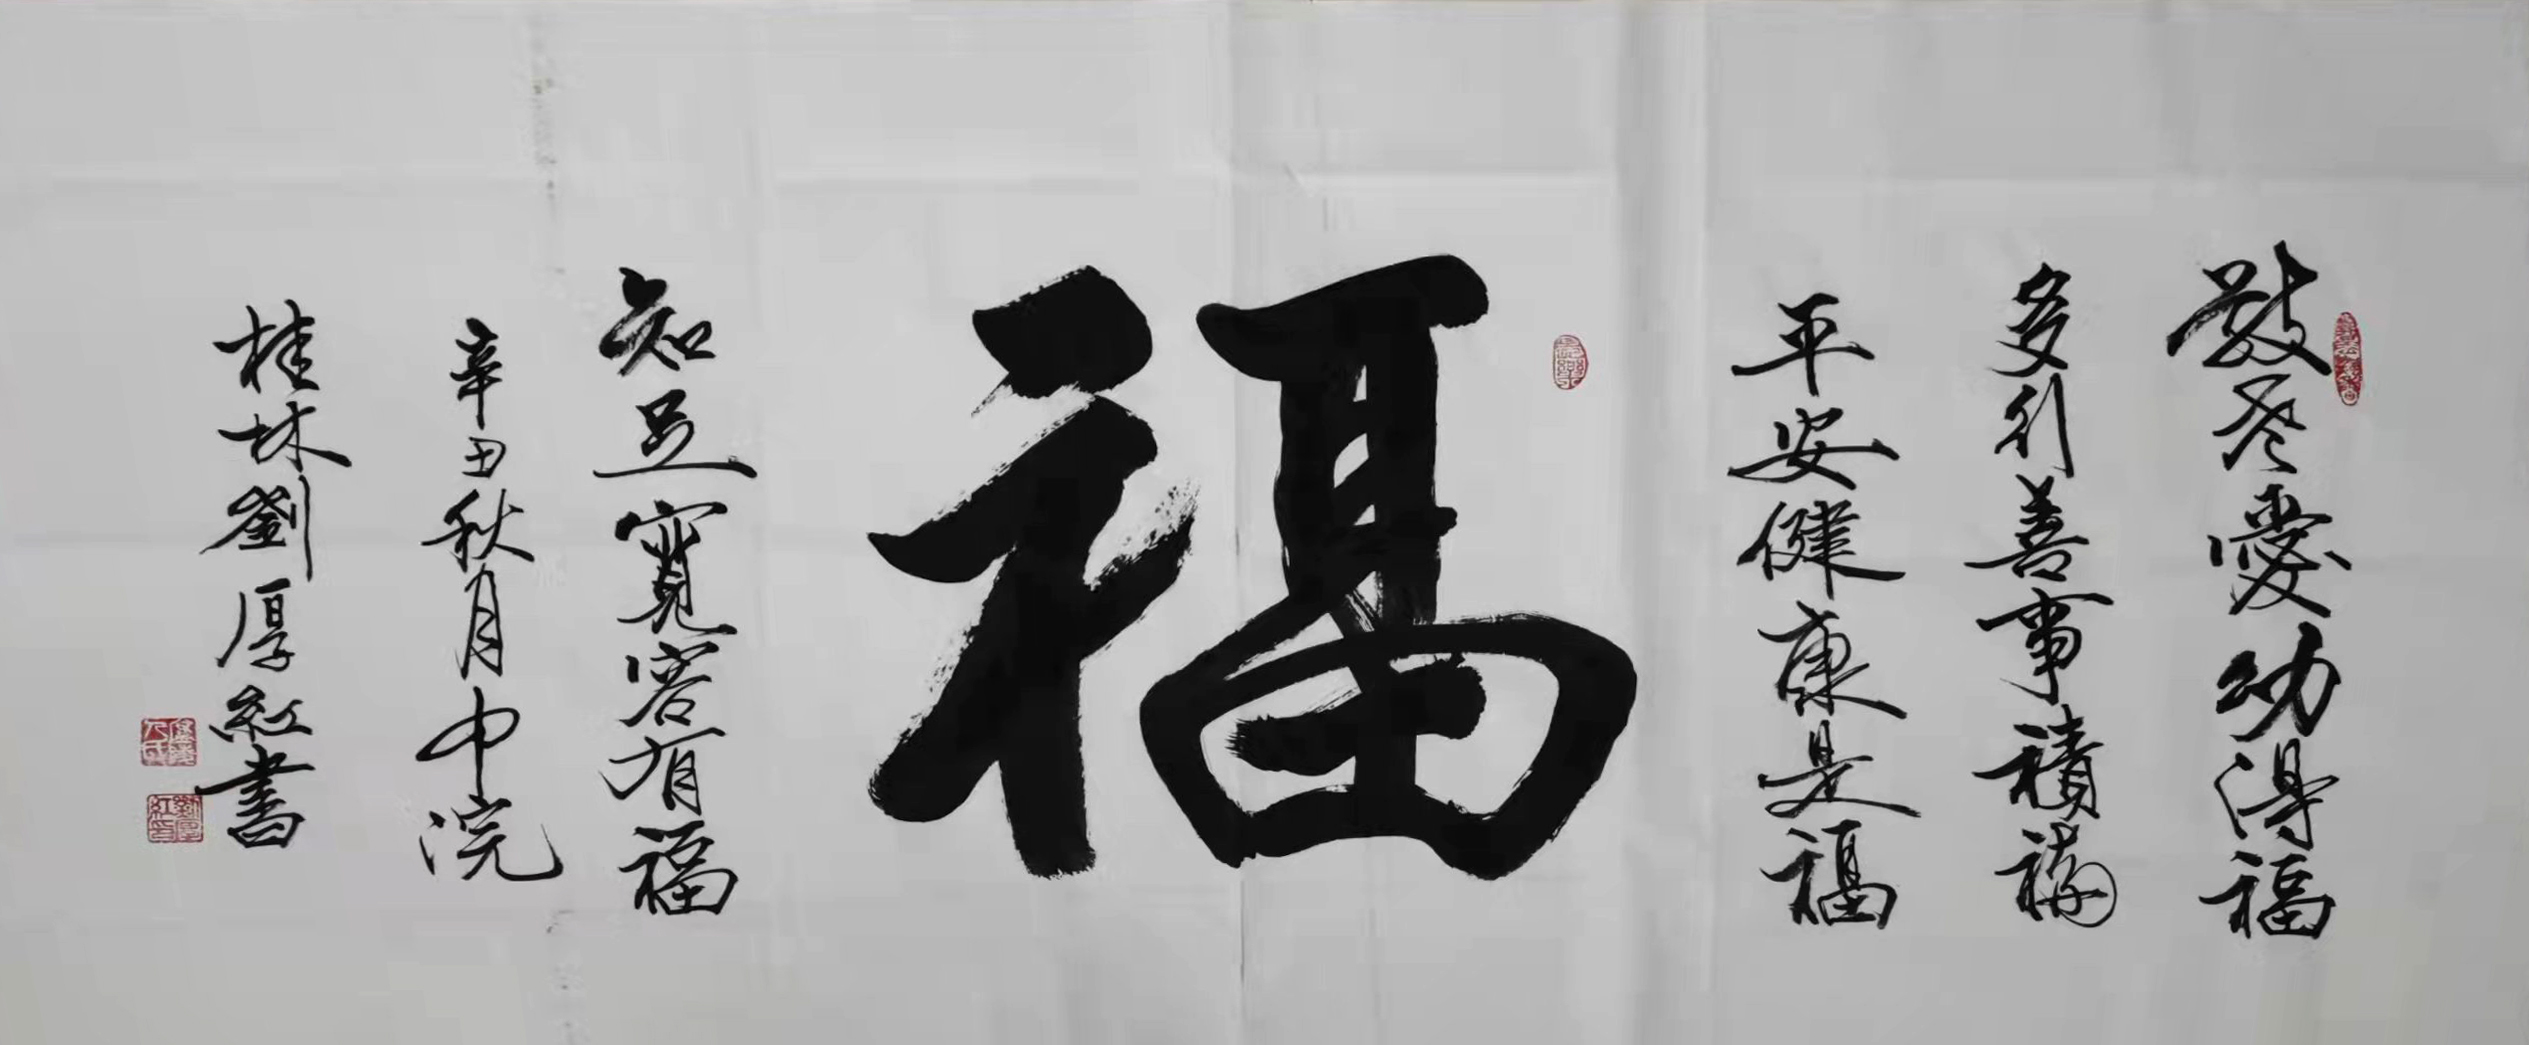 敬老愛幼得福
多行善事積福
平安健康是福
福
知足寬容有福
辛丑秋月中浣
桂林劉厚紅書